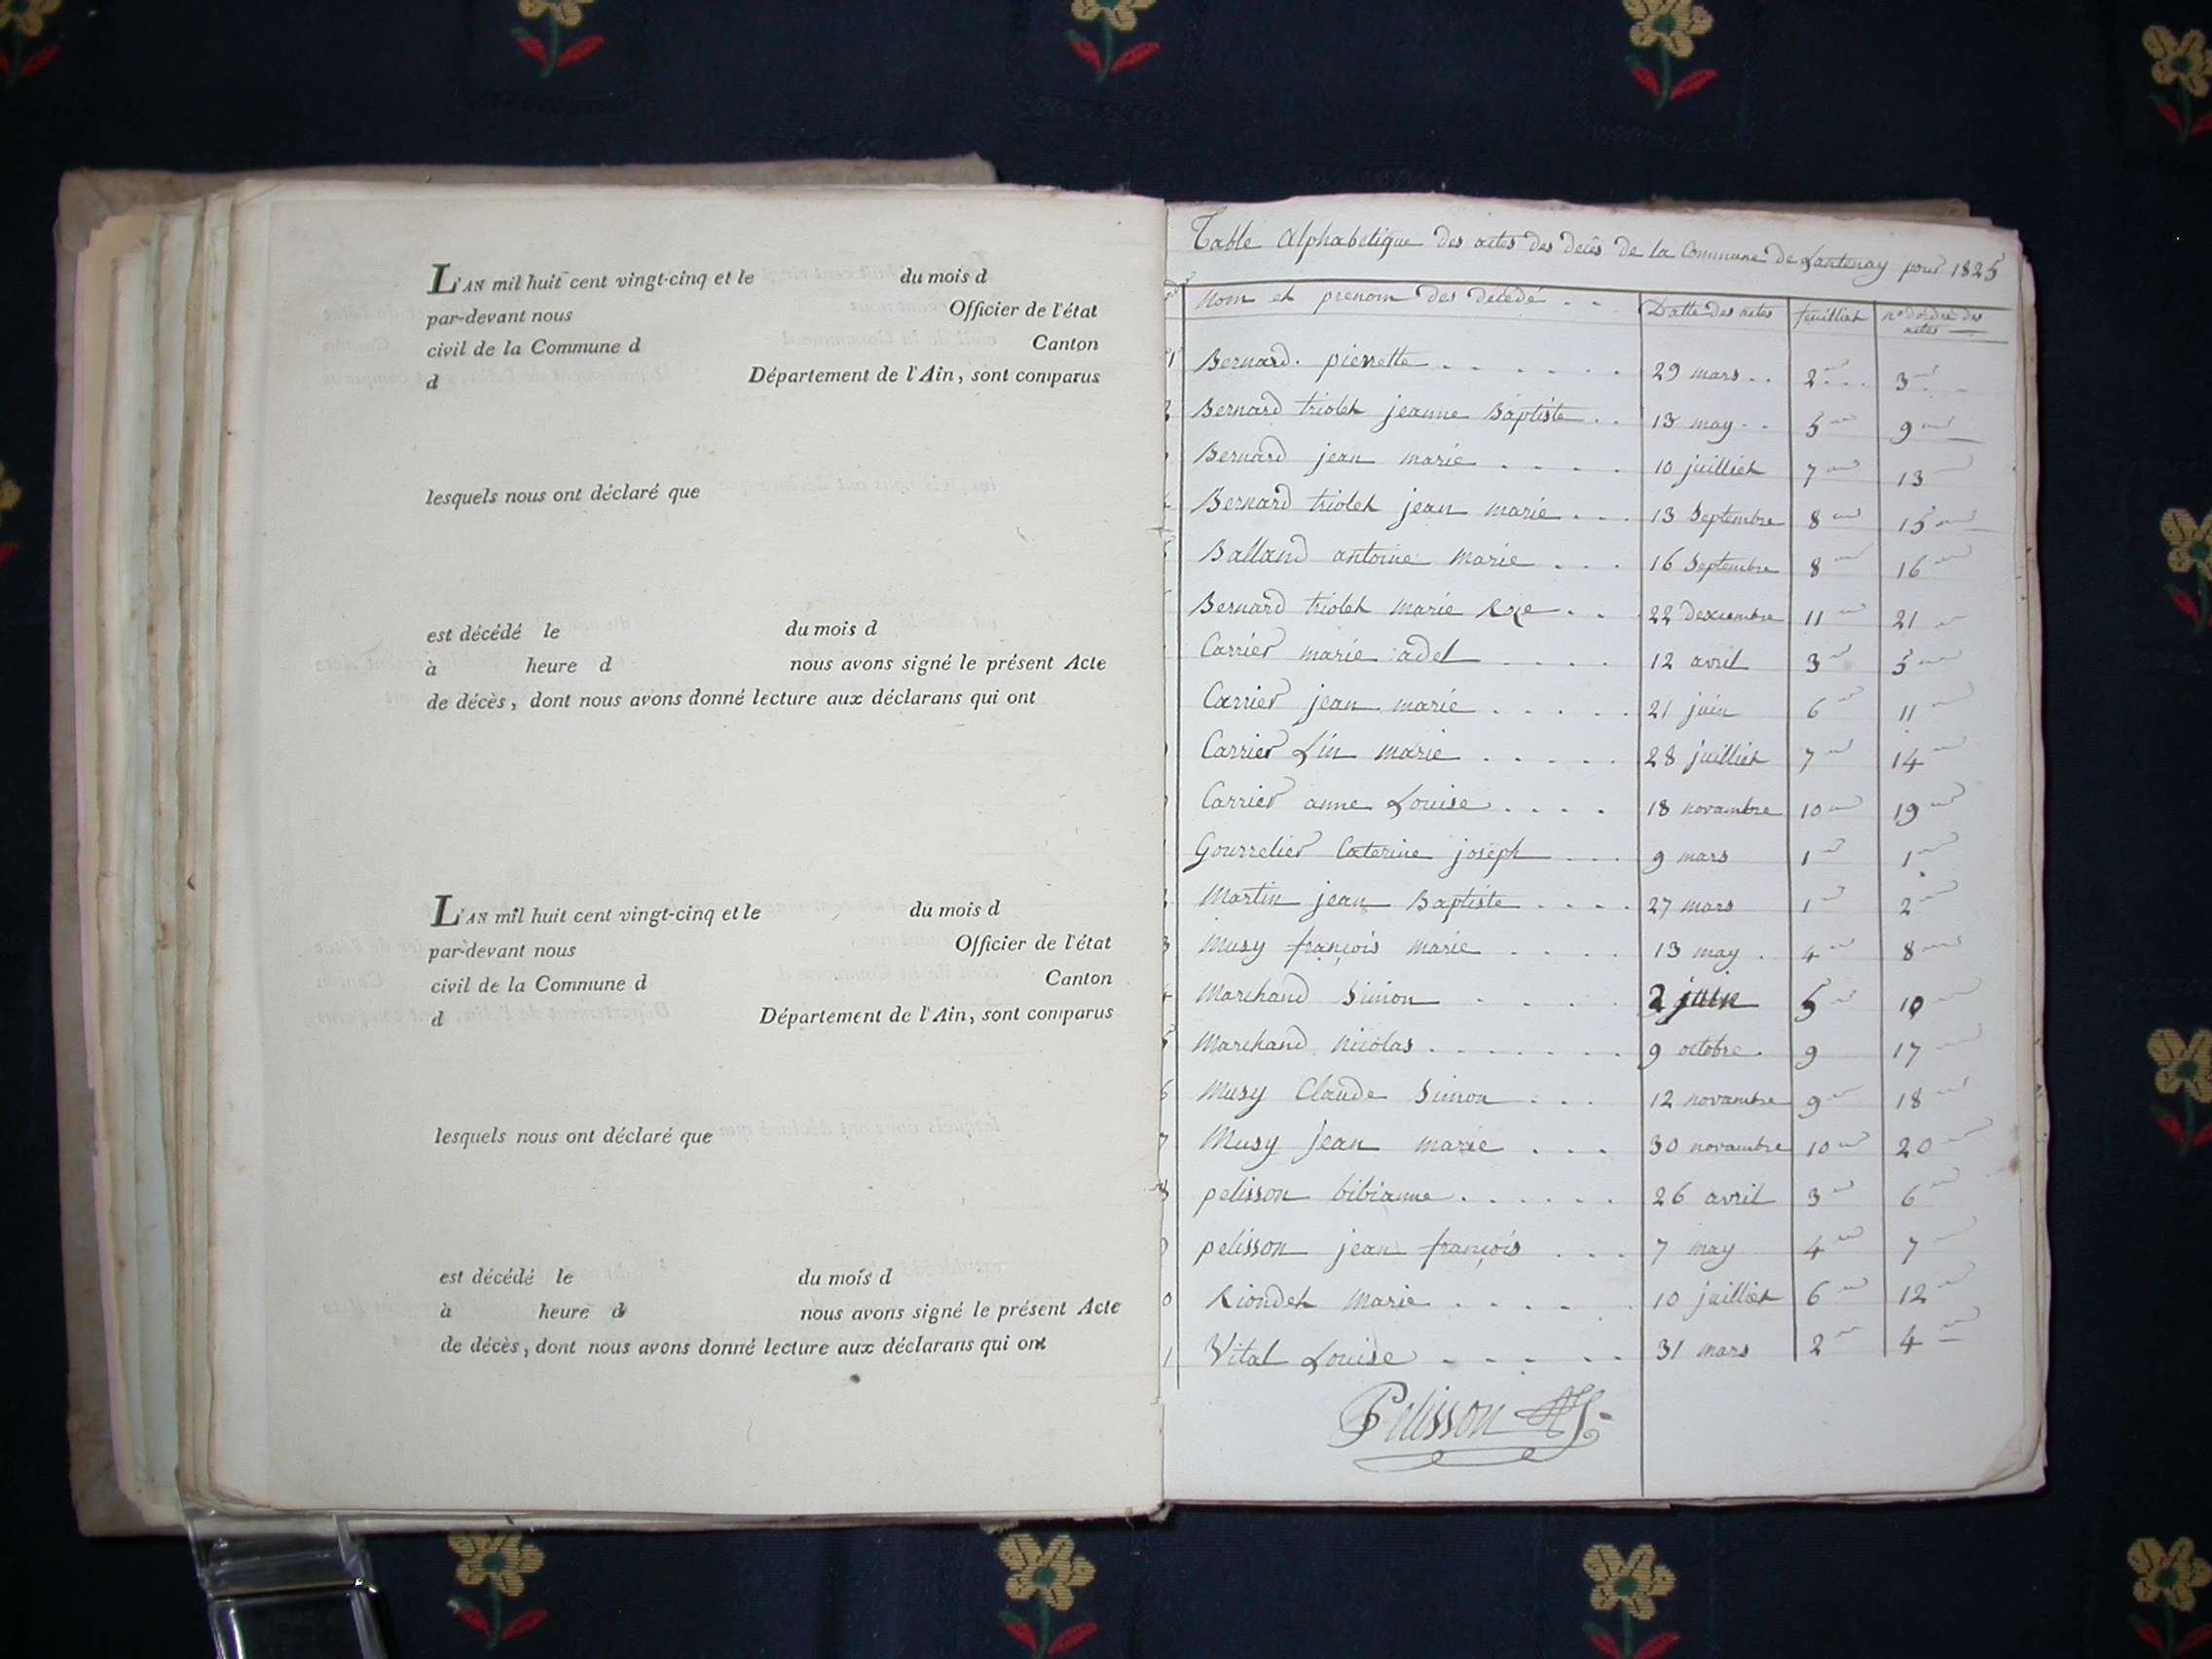 L'AN mil huit cent vingt-cinq et le du mois d
par-devant nous Officier de l'état
civil de la Commune d Canton
d Département de l'Ain, sont comparus
lesquels nous ont déclaré que
est décédé le du mois d
à heure d nous avons signé le présent Acte
de décès, dont nous avons donné lecture aux déclarans qui ont
L'AN mil huit cent vingt-cinq et le du mois d
par-devant nous Officier de l'état
civil de la Commune d Canton
d Département de l'Ain, sont comparus
lesquels nous ont déclaré que
est décédé le du mois d
à heure d nous avons signé le présent Acte
de décès, dont nous avons donné lecture aux déclarans qui ont
Table Alphabetique des actes des decès de la Commune de Lantenay pour 1825
Nom et prenom des décédé Datte des actes feuilliet n° d'ordre des
actes
1 Bernard pierrette 29 mars 2 3
2 Bernard triolet jeanne Baptiste 13 may 5 9
Bernard jean marie 10 juilliet 7 13
Bernard triolet jean marie 13 Septembre 8 15
Balland antoine marie 16 Septembre 8 16
Bernard triolet marie 22 11 21
Carrier marie adel 12 avril 3 5
Carrier jean marie 21 juin 6 11
Carrier Lin marie 28 juilliet 7 14
Carrier anne Louise 18 novambre 10 19
Gourrelier Caterine joseph 9 mars 1 1
Martin jean Baptiste 27 mars 1 2
3 Musy françois marie 13 may 4 8
4 Marchand Simon 2 juin 5 10
5 Marchand nicolas 9 octobre 9 17
6 Musy Claude Simon 12 novambre 9 18
7 Musy jean marie 30 novambre 10 20
8 pelisson bibianne 26 avril 3 6
9 pelisson jean françois 7 may 4 7
0 Riondet marie 10 juilliet 6 12
1 Vital Louise 31 mars 2 4
Pelisson